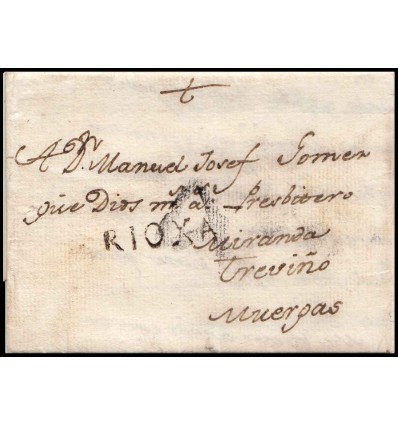 A D.n Manuel Josef Gomez
que Dios m.s a.s Presbitero
RIOXA
Miranda
Treviño
Muergas